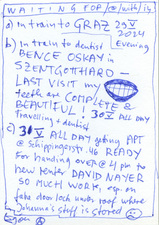 WAITING FOR/@/with/is
a) in train to GRAZ 29 V 2024
b) in train to dentist Evening
BENCE OSKAY in
SZENTGOTTHARD -
LAST VISIT my
teeth are COMPLETE &
BEAUTIFUL! 30 V ALL DAY
Travelling + dentist
c) 30 V ALL DAY getting APT
@ Schippingerstr. 46 READY
for handing over @ 4 pm to
new renter DAVID NAYER
SO MUCH WORK, esp. on
fake door loch under roof where
Johanna's stuff is stored